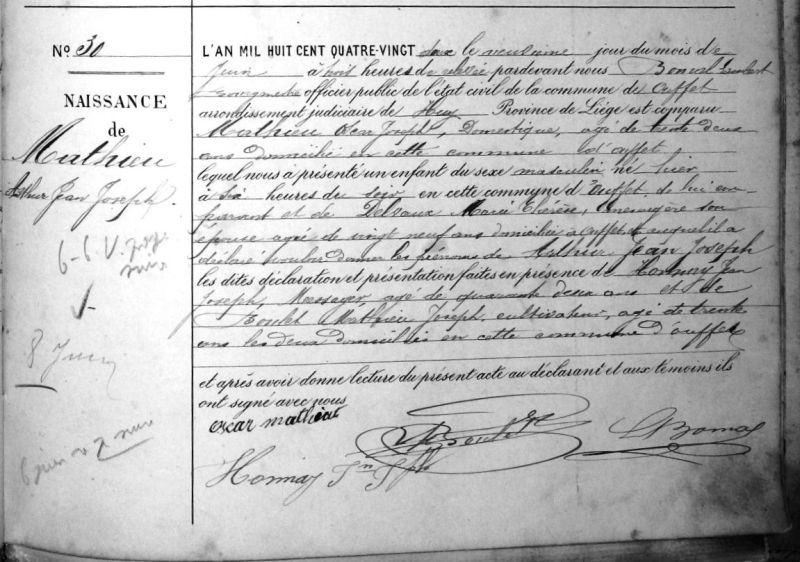 N° 30
NAISSANCE
de
Mathieu
Arthur Jean Joseph
8 Juin
L'AN MIL HUIT CENT QUATRE-VINGT le jour du mois de
Juin à huit heures de pardevant nous
Bourgmestre officier public de l'état civil de la commune de Ouffet
arrondissement judiciaire de Huy Province de Liège est comparu
Mathieu Joseph, Domestique, agé de trente deux
ans domicilié en cette commune d'ouffet
lequel nous a présenté un enfant du sexe masculin né hier
à six heures du soir en cette commune d'ouffet de lui com-
parant et de Delvaux Marie Thérèse, menagère son
épouse agée de vingt neuf ans domiciliée à ouffet et auquel il a
déclaré vouloir donner les prénoms de Arthur Jean Joseph
les dites déclaration et présentation faites en présence de Honnay Jean
Joseph, Messager agé de quarante deux ans et de
Mathieu Joseph, cultivateur, agé de trente
ans les deux domiciliés en cette commune d'ouffet
et après avoir donné lecture du présent acte au déclarant et aux témoins ils
ont signé avec nous
oscar mathieu
Honnay Jn Jph